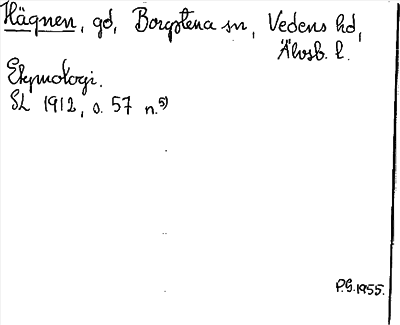 Hägnen, gd, Borgstena sn, Vedens hd,
Älvsb. l.
Etymologi.
SL 1912, s. 57 n.5)
P.G. 1955.